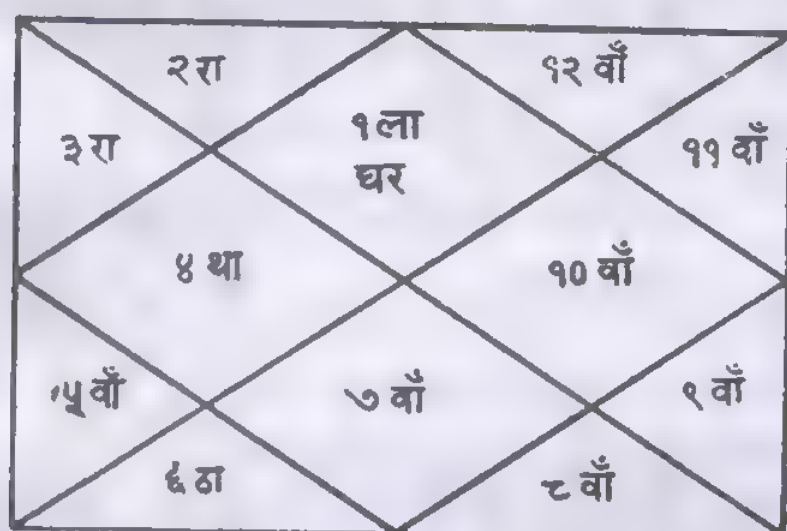 २ रा
१२ वाँ
३ रा
१ ला
घर
११ वाँ
४ था
१० वाँ
५ वाँ
७ वाँ
९ वाँ
६ ठा
८ वाँ